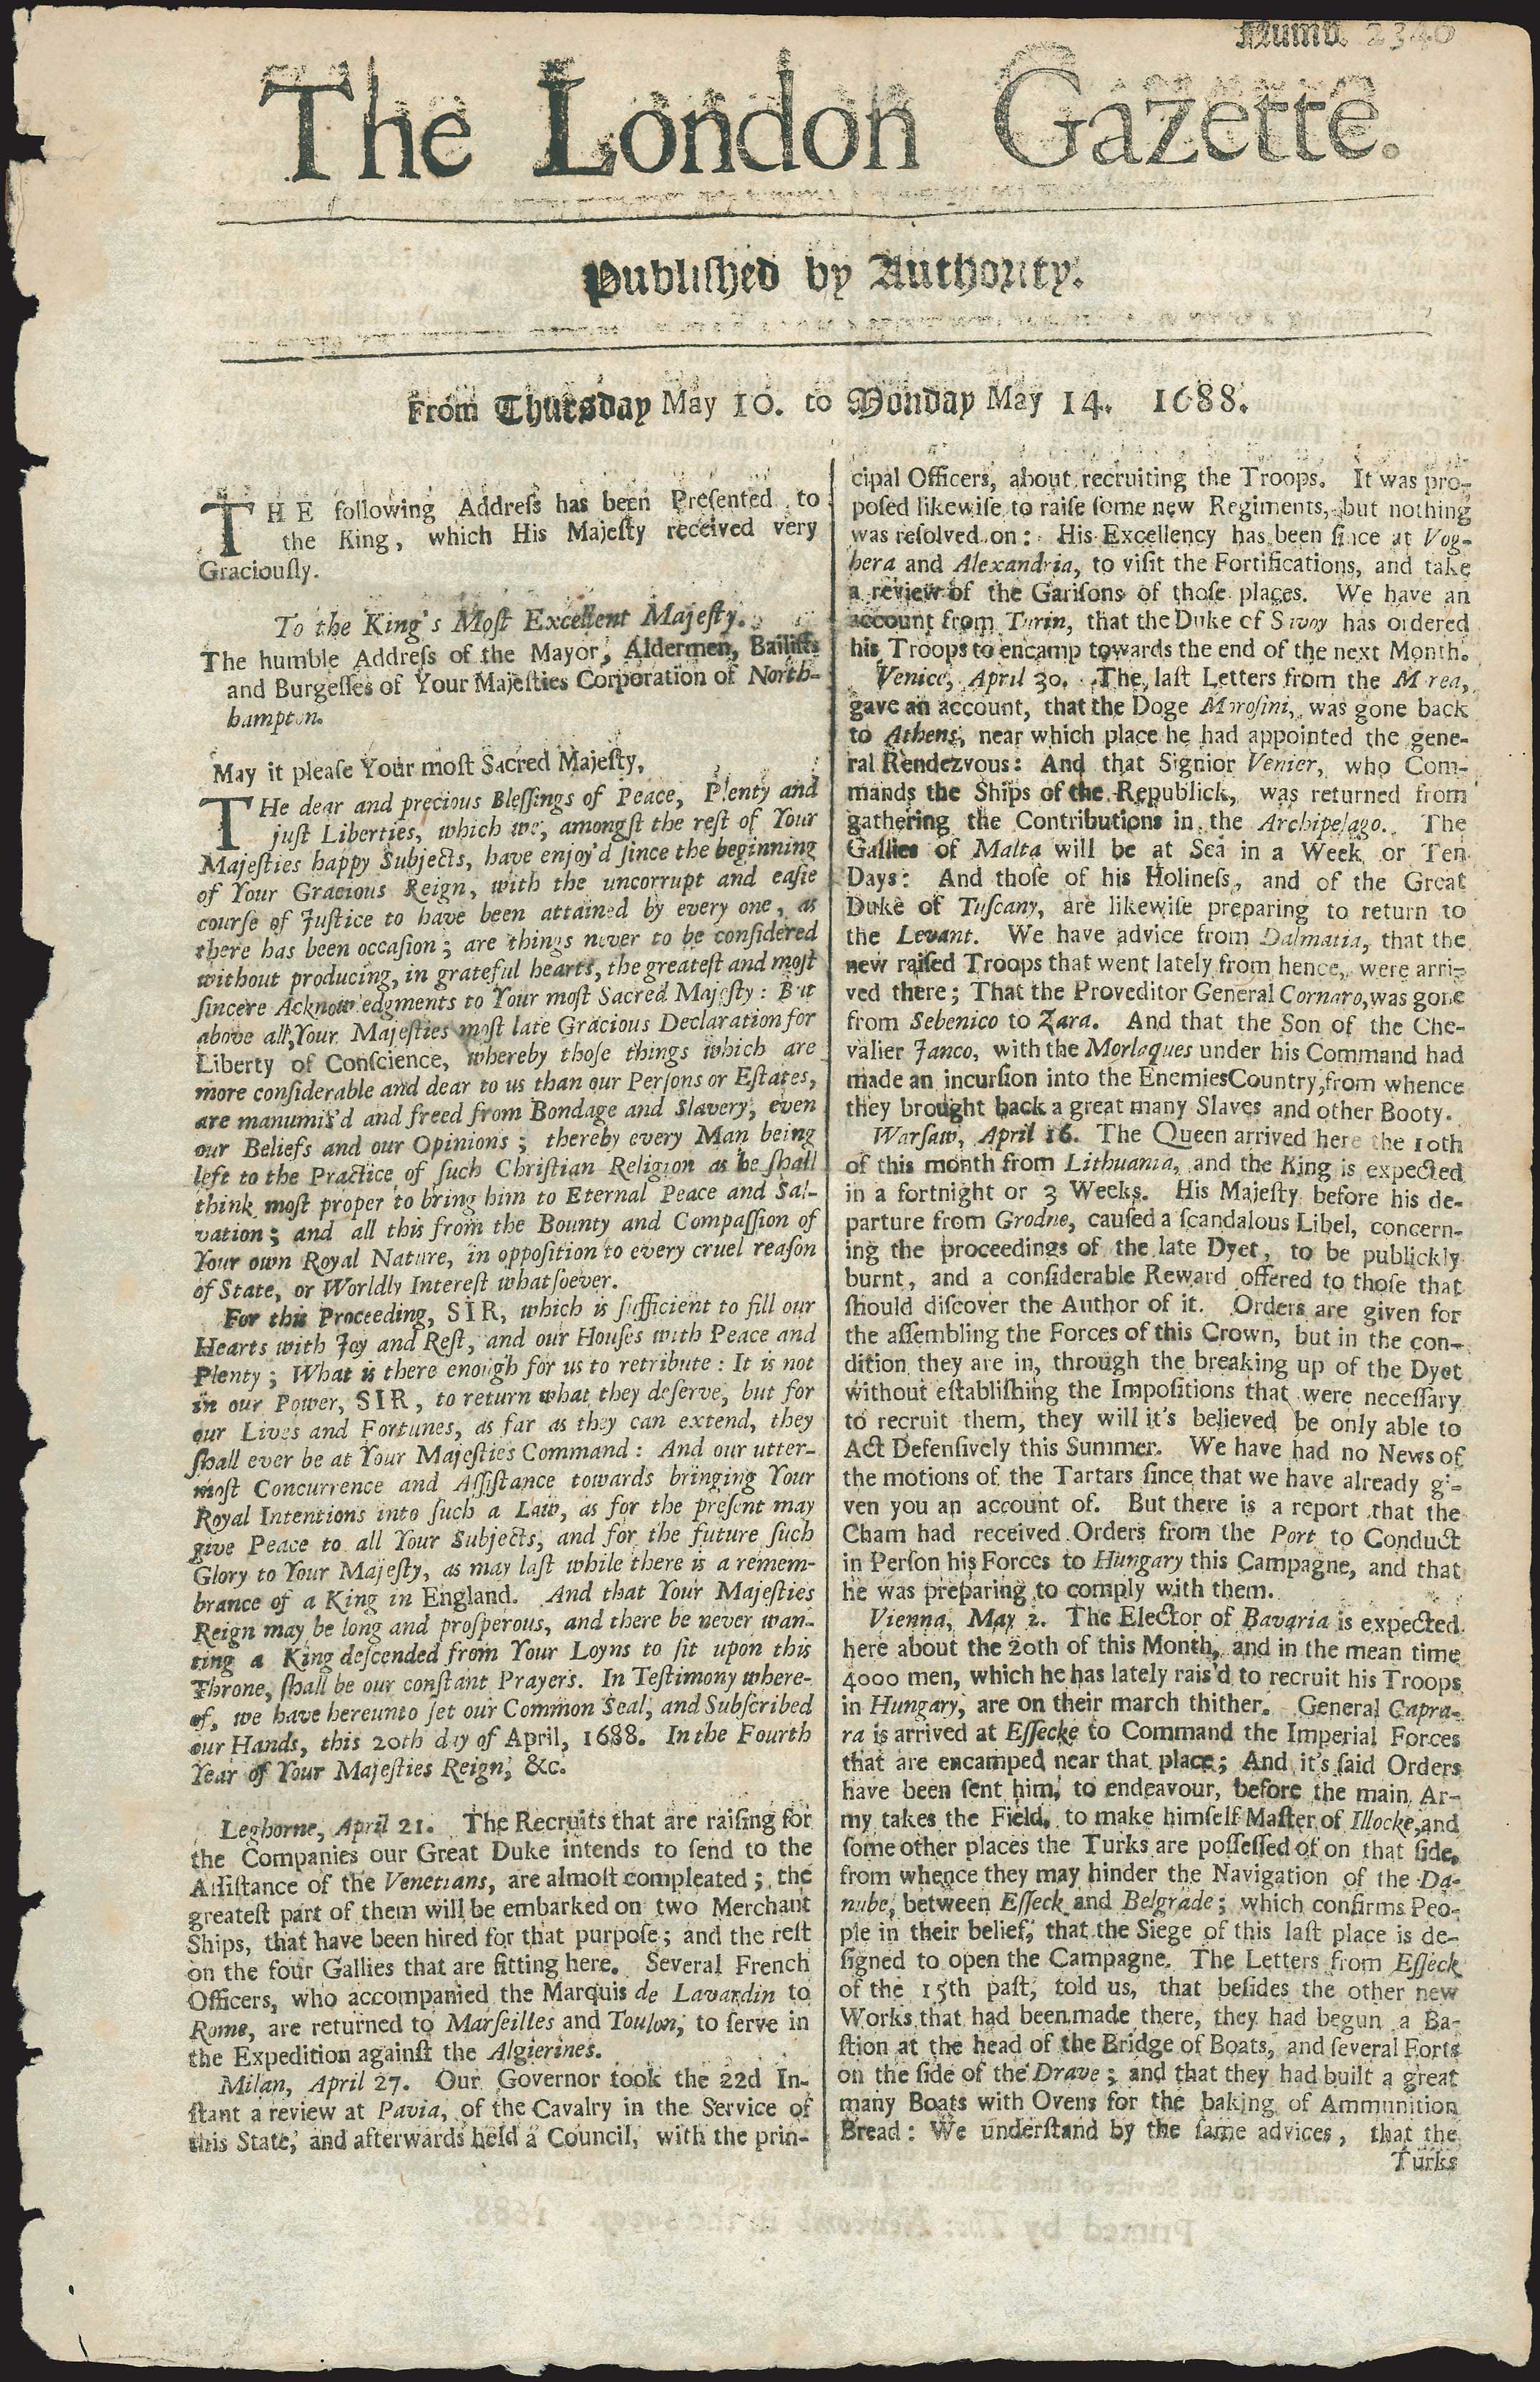 Numb. 2346
The London Gazette.
Published by Authority.
From Thursday May 10. to Monday May 14. 1688.
THE following Addreſs has been Preſented to
the King, which His Majeſty received very
Graciouſly.
To the King's Moſt Excellent Majeſty.
The humble Addreſs of the Mayor, Aldermen, Bailiffs
and Burgeſſes of Your Majeſties Corporation of North-
hampton.
May it pleaſe Your moſt Sacred Majeſty,
THe dear and precious Bleſſings of Peace, Plenty and
juſt Liberties, which we, amongſt the reſt of Your
Majeſties happy Subjects, have enjoy'd ſince the beginning
of Your Gracious Reign, with the uncorrupt and eaſie
courſe of Juſtice to have been attained by every one, as
there has been occaſion; are things never to be conſidered
without producing, in grateful hearts, the greateſt and moſt
ſincere Acknowledgments to Your moſt Sacred Majeſty: But
above all, Your Majeſties moſt late Gracious Declaration for
Liberty of Conſcience, whereby thoſe things which are
more conſiderable and dear to us than our Perſons or Eſtates,
are manumis'd and freed from Bondage and Slavery, even
our Beliefs and our Opinions; thereby every Man being
left to the Practice of ſuch Chriſtian Religion as he ſhall
think moſt proper to bring him to Eternal Peace and Sal-
vation; and all this from the Bounty and Compaſſion of
Your own Royal Nature, in oppoſition to every cruel reaſon
of State, or Worldly Intereſt whatſoever.
For this Proceeding, SIR, which is ſufficient to fill our
Hearts with Joy and Reſt, and our Houſes with Peace and
Plenty; What is there enough for us to retribute: It is not
in our Power, SIR, to return what they deſerve, but for
our Lives and Fortunes, as far as they can extend, they
ſhall ever be at Your Majeſties Command: And our utter-
moſt Concurrence and Aſſiſtance towards bringing Your
Royal Intentions into ſuch a Law, as for the preſent may
give Peace to all Your Subjects, and for the future ſuch
Glory to Your Majeſty, as may laſt while there is a remem-
brance of a King in England. And that Your Majeſties
Reign may be long and proſperous, and there be never wan-
ting a King deſcended from Your Loyns to ſit upon this
Throne, ſhall be our conſtant Prayers. In Teſtimony where-
of, we have hereunto ſet our Common Seal, and Subſcribed
our Hands, this 20th day of April, 1688. In the Fourth
Year of Your Majeſties Reign, &c.
Leghorne, April 21. The Recruits that are raiſing for
the Companies our Great Duke intends to ſend to the
Aſſiſtance of the Venetians, are almoſt compleated; the
greateſt part of them will be embarked on two Merchant
Ships, that have been hired for that purpoſe; and the reſt
on the four Gallies that are fitting here. Several French
Officers, who accompanied the Marquis de Lavardin to
Rome, are returned to Marſeilles and Toulon, to ſerve in
the Expedition againſt the Algierines.
Milan, April 27. Our Governor took the 22d In-
ſtant a review at Pavia, of the Cavalry in the Service of
this State, and afterwards held a Council, with the prin-
cipal Officers, about recruiting the Troops. It was pro-
poſed likewiſe to raiſe ſome new Regiments, but nothing
was reſolved on: His Excellency has been ſince at Vog-
hera and Alexandria, to viſit the Fortifications, and take
a review of the Gariſons of thoſe places. We have an
account from Turin, that the Duke of Savoy has ordered
his Troops to encamp towards the end of the next Month.
Venice, April 30. The laſt Letters from the Morea,
gave an account, that the Doge Moroſini, was gone back
to Athens, near which place he had appointed the gene-
ral Rendezvous: And that Signior Venier, who Com-
mands the Ships of the Republick, was returned from
gathering the Contributions in the Archipelago. The
Gallies of Malta will be at Sea in a Week or Ten
Days: And thoſe of his Holineſs, and of the Great
Duke of Tuſcany, are likewiſe preparing to return to
the Levant. We have advice from Dalmatia, that the
new raiſed Troops that went lately from hence, were arri-
ved there; That the Proveditor General Cornaro, was gone
from Sebenico to Zara. And that the Son of the Che-
valier Janco, with the Morlaques under his Command had
made an incurſion into the Enemies Country, from whence
they brought back a great many Slaves and other Booty.
Warſaw, April 16. The Queen arrived here the 10th
of this month from Lithuania, and the King is expected
in a fortnight or 3 Weeks. His Majeſty before his de-
parture from Grodne, cauſed a ſcandalous Libel, concern-
ing the proceedings of the late Dyet, to be publickly
burnt, and a conſiderable Reward offered to thoſe that
ſhould diſcover the Author of it. Orders are given for
the aſſembling the Forces of this Crown, but in the con-
dition they are in, through the breaking up of the Dyet
without eſtabliſhing the Impoſitions that were neceſſary
to recruit them, they will it's believed be only able to
Act Defenſively this Summer. We have had no News of
the motions of the Tartars ſince that we have already gi-
ven you an account of. But there is a report that the
Cham had received Orders from the Port to Conduct
in Perſon his Forces to Hungary this Campagne, and that
he was preparing to comply with them.
Vienna, May 2. The Elector of Bavaria is expected
here about the 20th of this Month, and in the mean time
4000 men, which he has lately rais'd to recruit his Troops
in Hungary, are on their march thither. General Capra-
ra is arrived at Eſſecke to Command the Imperial Forces
that are encamped near that place; And it's ſaid Orders
have been ſent him, to endeavour, before the main Ar-
my takes the Field, to make himſelf Maſter of Illocke, and
ſome other places the Turks are poſſeſſed of on that ſide,
from whence they may hinder the Navigation of the Da-
nube, between Eſſeck and Belgrade; which confirms Peo-
ple in their belief, that the Siege of this laſt place is de-
ſigned to open the Campagne. The Letters from Eſſeck
of the 15th paſt, told us, that beſides the other new
Works that had been made there, they had begun a Ba-
ſtion at the head of the Bridge of Boats, and ſeveral Forts
on the ſide of the Drave; and that they had built a great
many Boats with Ovens for the baking of Ammunition
Bread: We underſtand by the ſame advices, that the
Turks